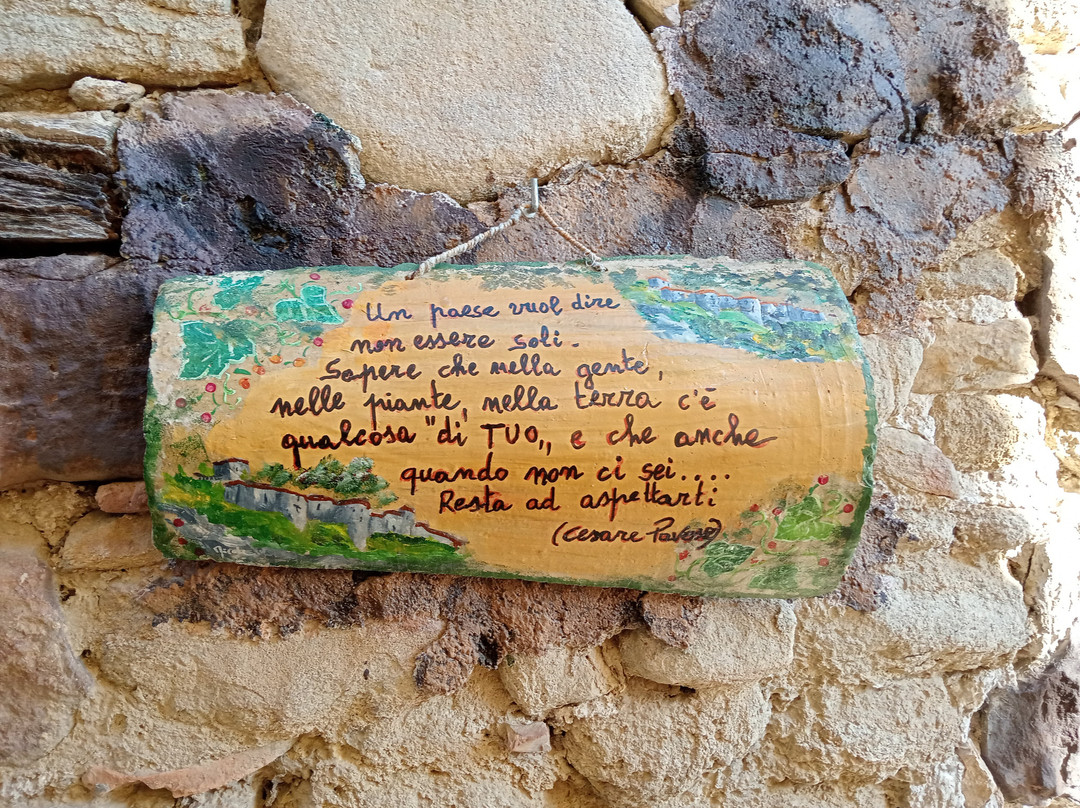 Un paese vuol dire
non essere soli.
Sapere che nella gente,
nelle piante, nella terra c'è
qualcosa "di TUO„ e che anche
quando non ci sei....
Resta ad aspettarti
(Cesare Pavese)